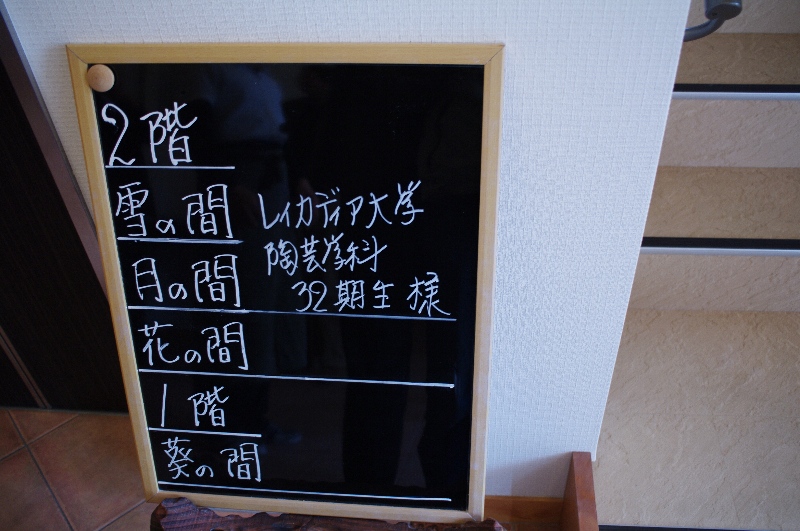 2階
雪の間 レイカディア大学
陶芸学科
月の間 32期生 様
花の間
1階
葵の間